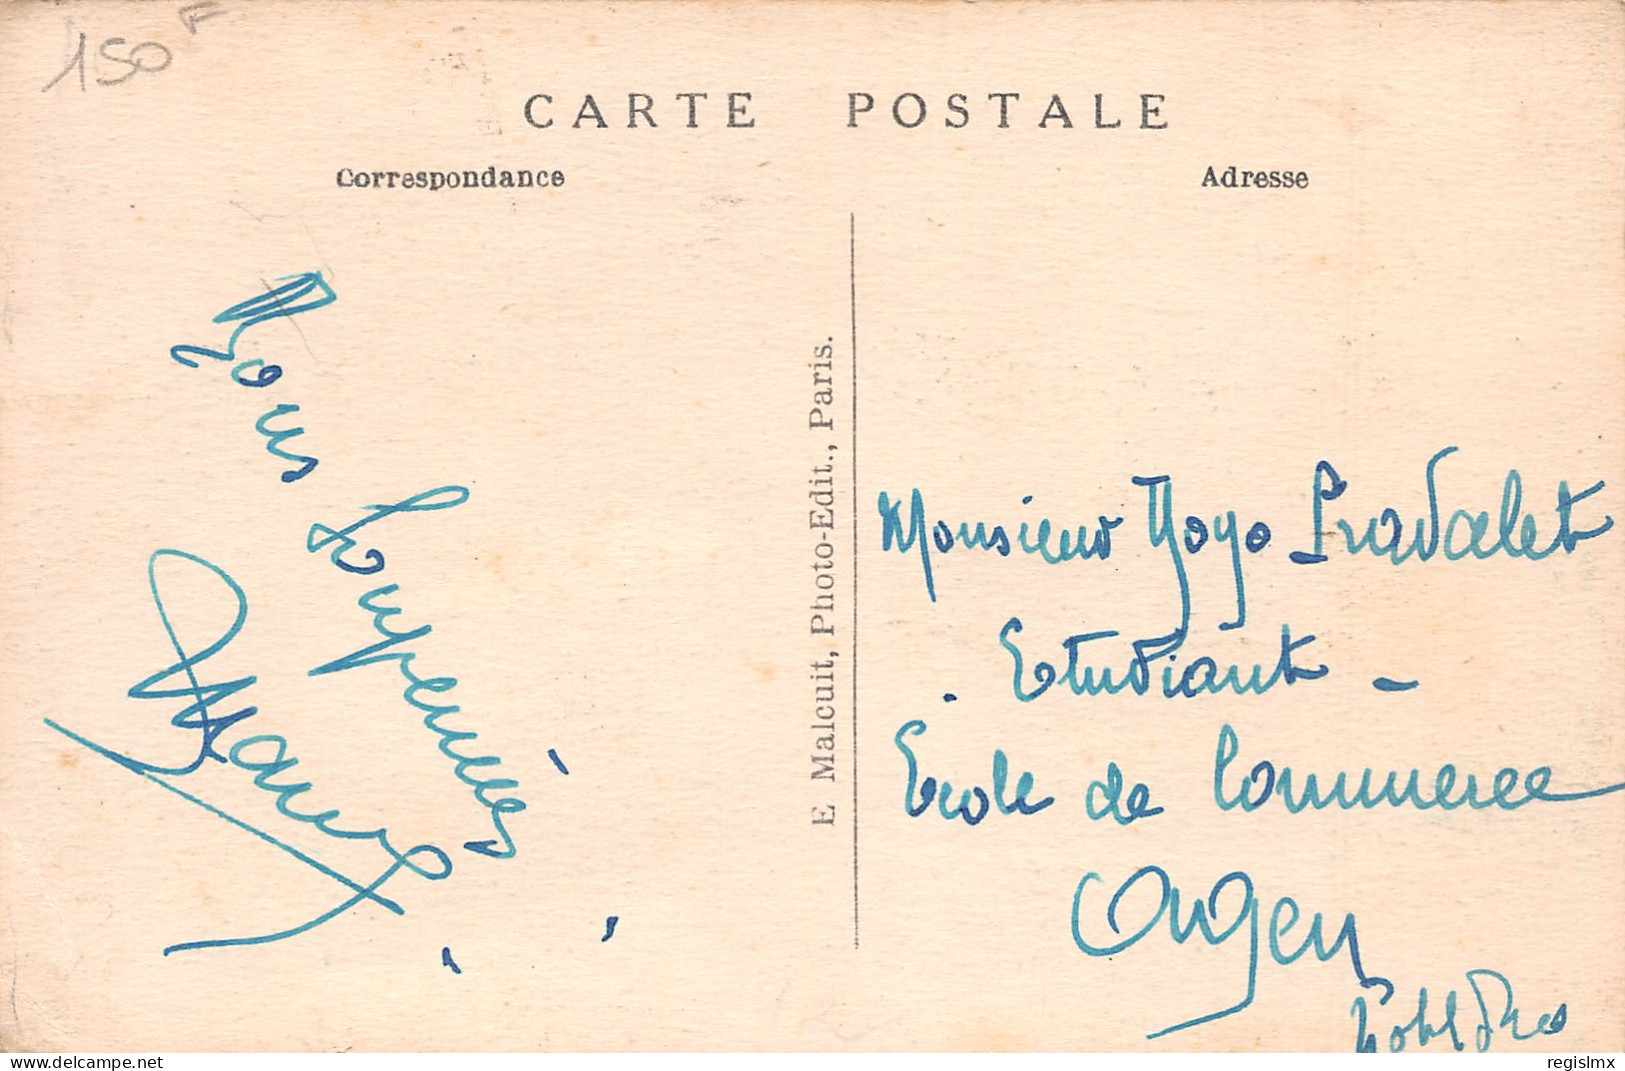 150F
CARTE POSTALE
Correspondance
Adresse
Bons Souvenirs
E Malcuit, Photo-Edit., Paris.
Monsieur Yoyo Pradalet
Etudiant -
Ecole de Commerce
Agen
regislmx